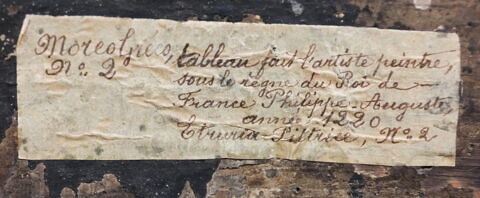 Moreo Greco, tableau fait l'artiste peintre,
No. 2 sous le règne du Roi de
France Philippe-Auguste,
année 1220
Etruria-Pittrice, No. 2